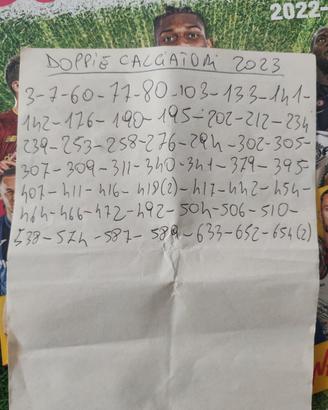 2022-
DOPPIE CALCIATORI 2023
3-7-60-77-80-103-133-141-
142-176-190-195-202-212-234
239-253-258-276-294-302-305-
307-309-311-340-341-379-395-
407-411-416-419(2)-417-442-454-
464-466-472-492-504-506-510-
538-574-587-589-633-652-654(2)